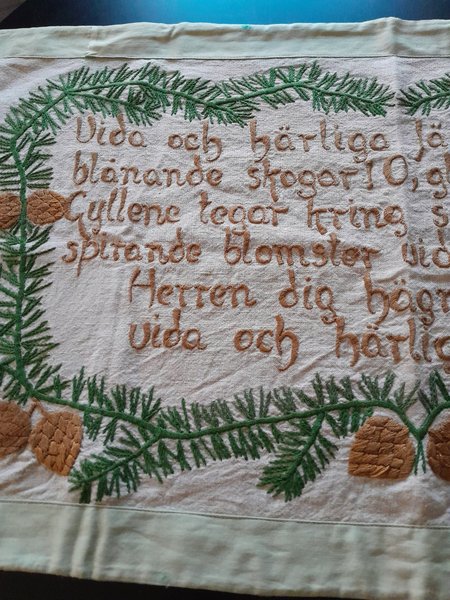 Vida och härliga Jä
blånande skogar! O, gl
Gyllene tegar kring s
spirande blomster vid
Herren dig hägn
vida och härlig